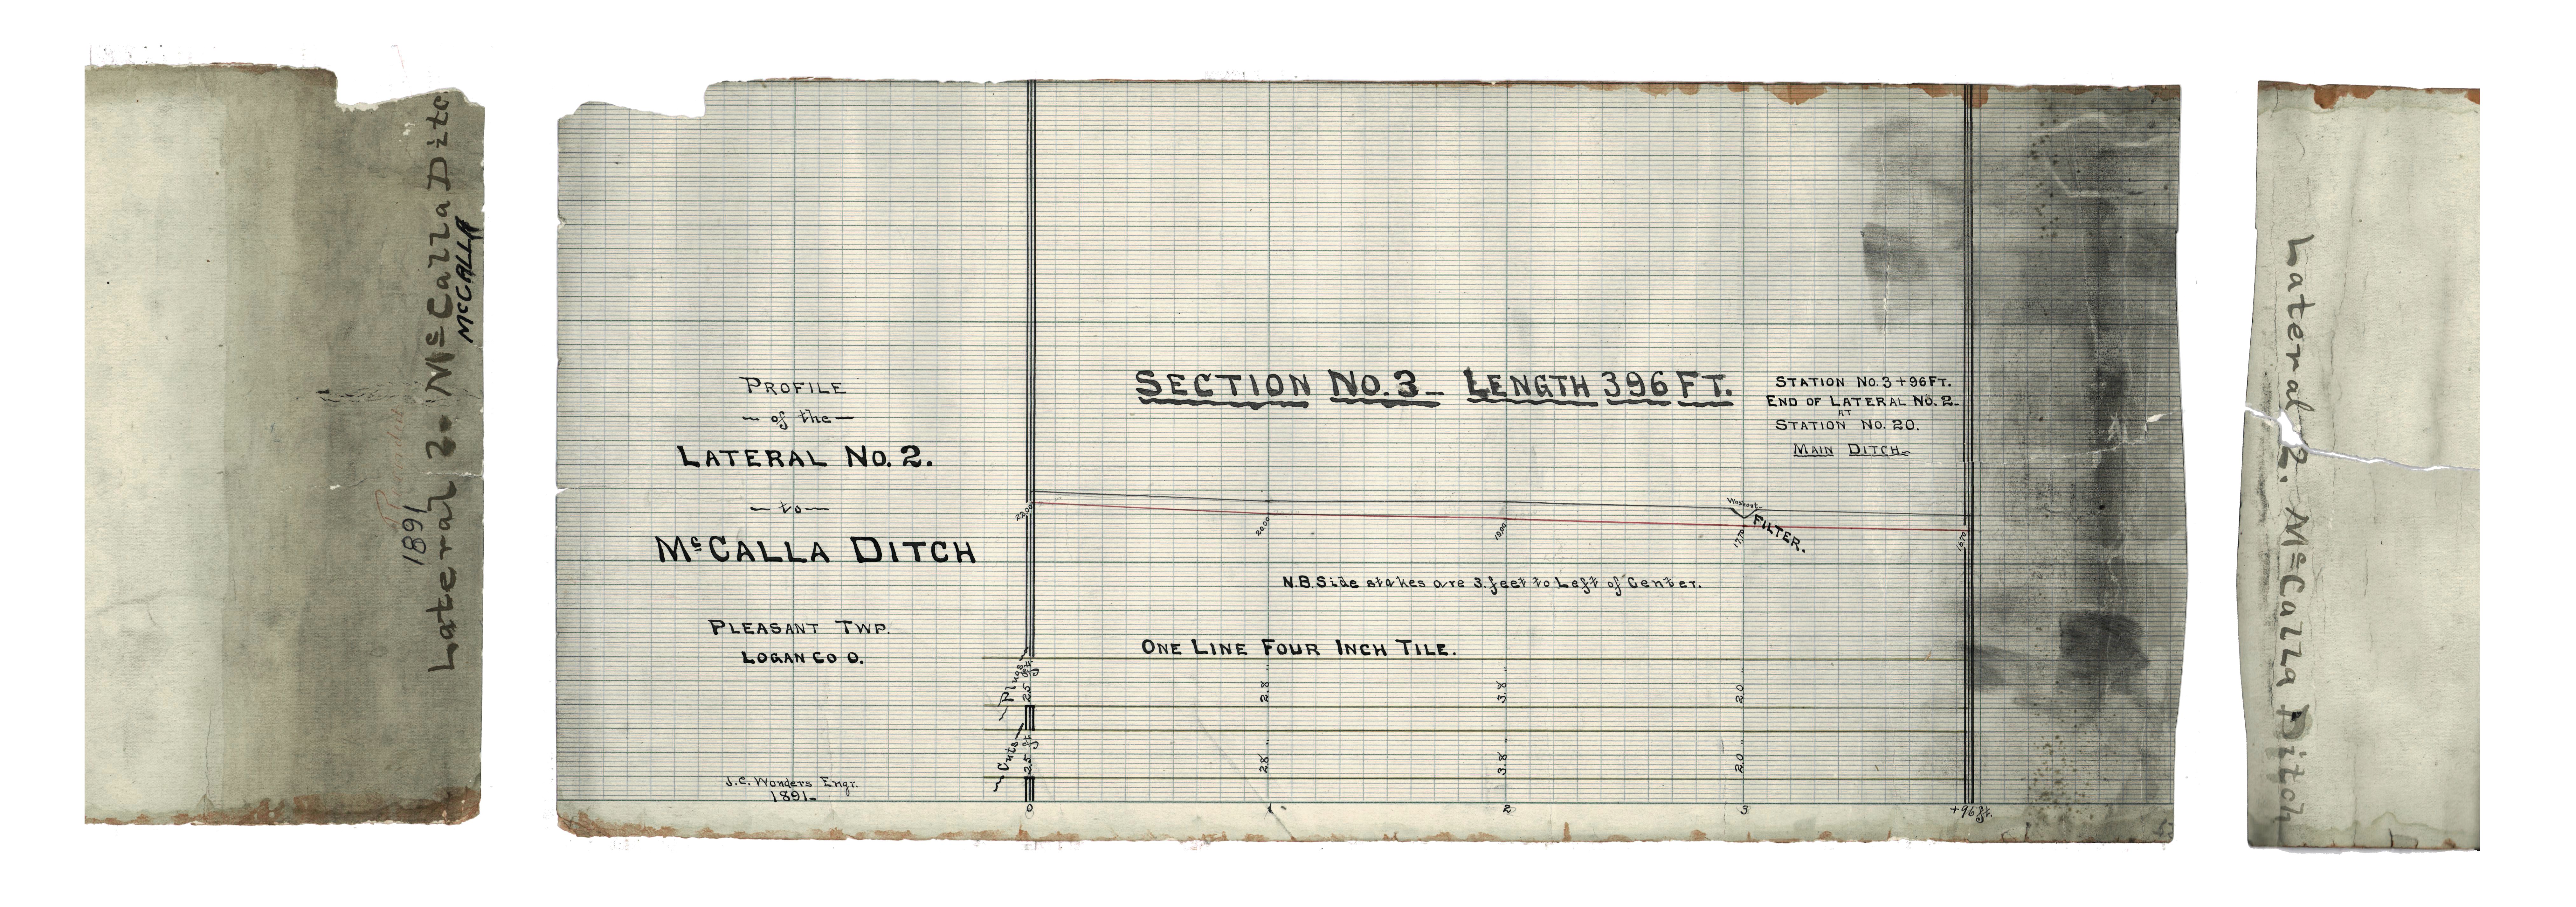 1891
Lateral 2. McCalla Ditc
McCALLA
PROFILE
— of the —
LATERAL NO. 2.
— to —
McCALLA DITCH
PLEASANT TWP.
LOGAN CO O.
J.C. Wonders Engr.
1891-
SECTION NO. 3_ LENGTH 396 FT.
STATION NO. 3 + 96 FT.
END OF LATERAL NO. 2-
AT
STATION NO. 20.
MAIN DITCH-
2200 2000 1890 1770 1670
Washout
FILTER.
N.B. Side stakes are 3. feet to Left of Center.
ONE LINE FOUR INCH TILE.
Plugs 2.5 ft 2.8 " 3.8 " 2.0 "
Cuts 2.5 ft 2.8 " 3.8 " 2.0 "
0 1 2 3 +96 ft.
Lateral 2. McCalla Ditch